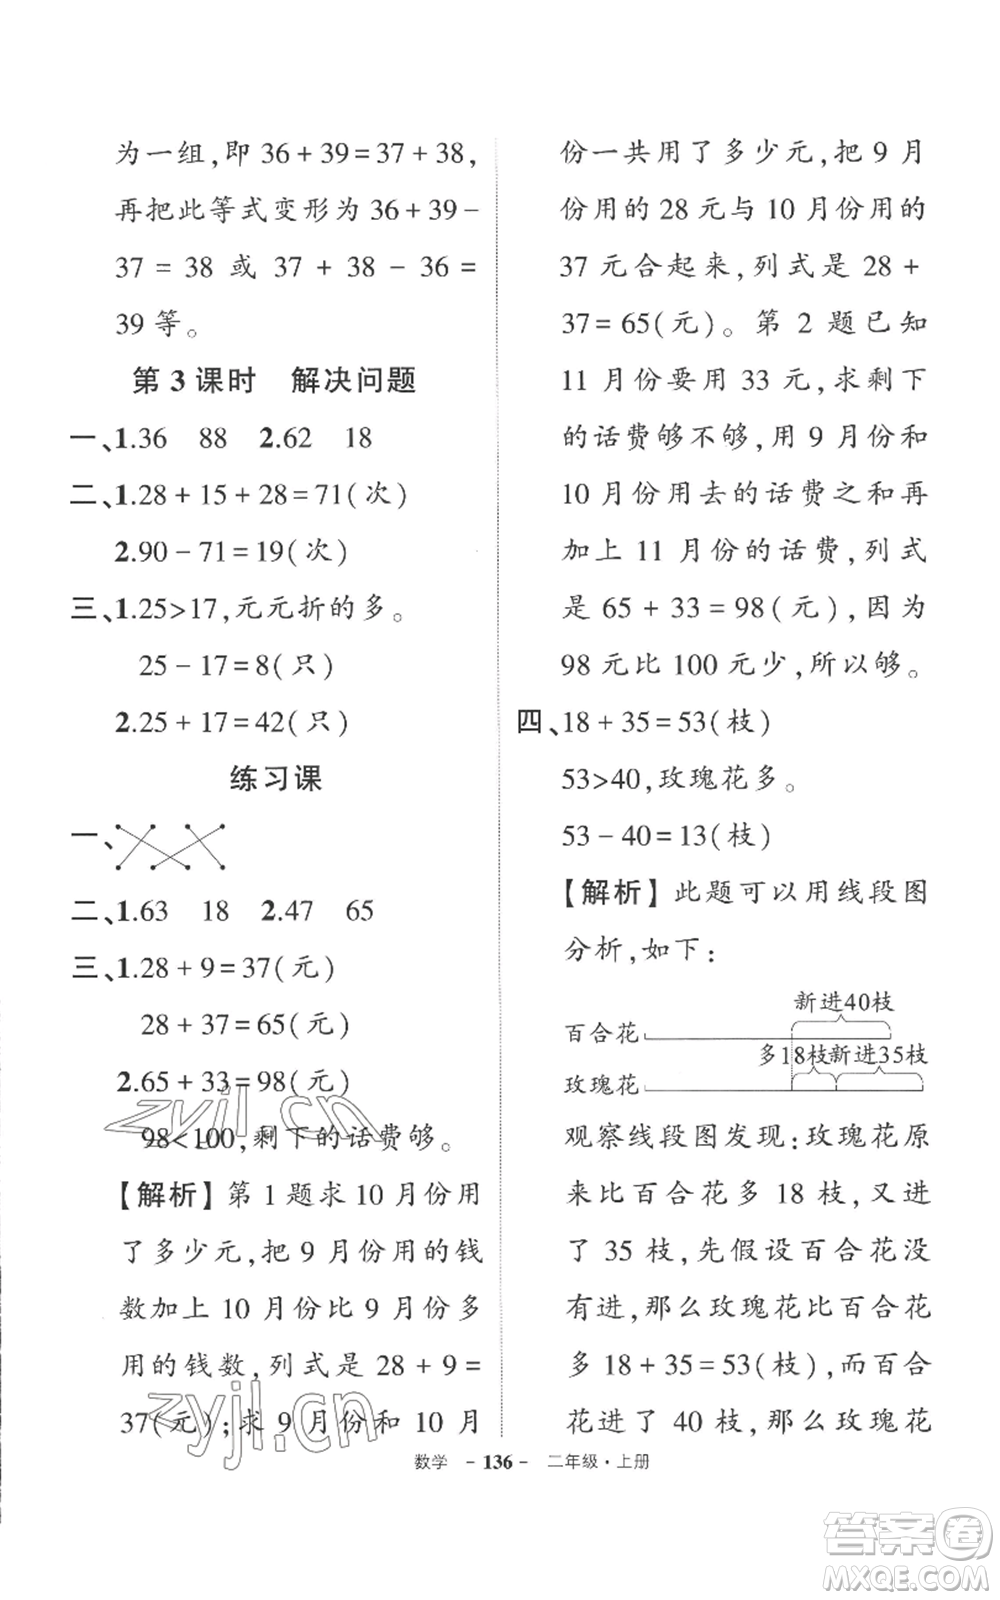 为一组,即 36 + 39 = 37 + 38,
再把此等式变形为 36 + 39 -
37 = 38 或 37 + 38 - 36 =
39 等。
第 3 课时 解决问题
一、1.36 88 2.62 18
二、1.28 + 15 + 28 = 71(次)
2.90 - 71 = 19(次)
三、1.25>17,元元折的多。
25 - 17 = 8(只)
2.25 + 17 = 42(只)
练习课
一、
二、1.63 18 2.47 65
三、1.28 + 9 = 37(元)
28 + 37 = 65(元)
2.65 + 33 = 98(元)
98<100,剩下的话费够。
【解析】第 1 题求 10 月份用
了多少元,把 9 月份用的钱
数加上 10 月份比 9 月份多
用的钱数,列式是 28 + 9 =
37(元);求 9 月份和 10 月
份一共用了多少元,把 9 月
份用的 28 元与 10 月份用的
37 元合起来,列式是 28 +
37 = 65(元)。第 2 题已知
11 月份要用 33 元,求剩下
的话费够不够,用 9 月份和
10 月份用去的话费之和再
加上 11 月份的话费,列式
是 65 + 33 = 98(元),因为
98 元比 100 元少,所以够。
四、18 + 35 = 53(枝)
53>40,玫瑰花多。
53 - 40 = 13(枝)
【解析】此题可以用线段图
分析,如下:
新进40枝
百合花
多18枝新进35枝
玫瑰花
观察线段图发现:玫瑰花原
来比百合花多 18 枝,又进
了 35 枝,先假设百合花没
有进,那么玫瑰花比百合花
多 18 + 35 = 53(枝),而百合
花进了 40 枝,那么玫瑰花
数学 - 136 - 二年级·上册
zyjl.cn
zyjl.cn
答案圈
MXQE.COM